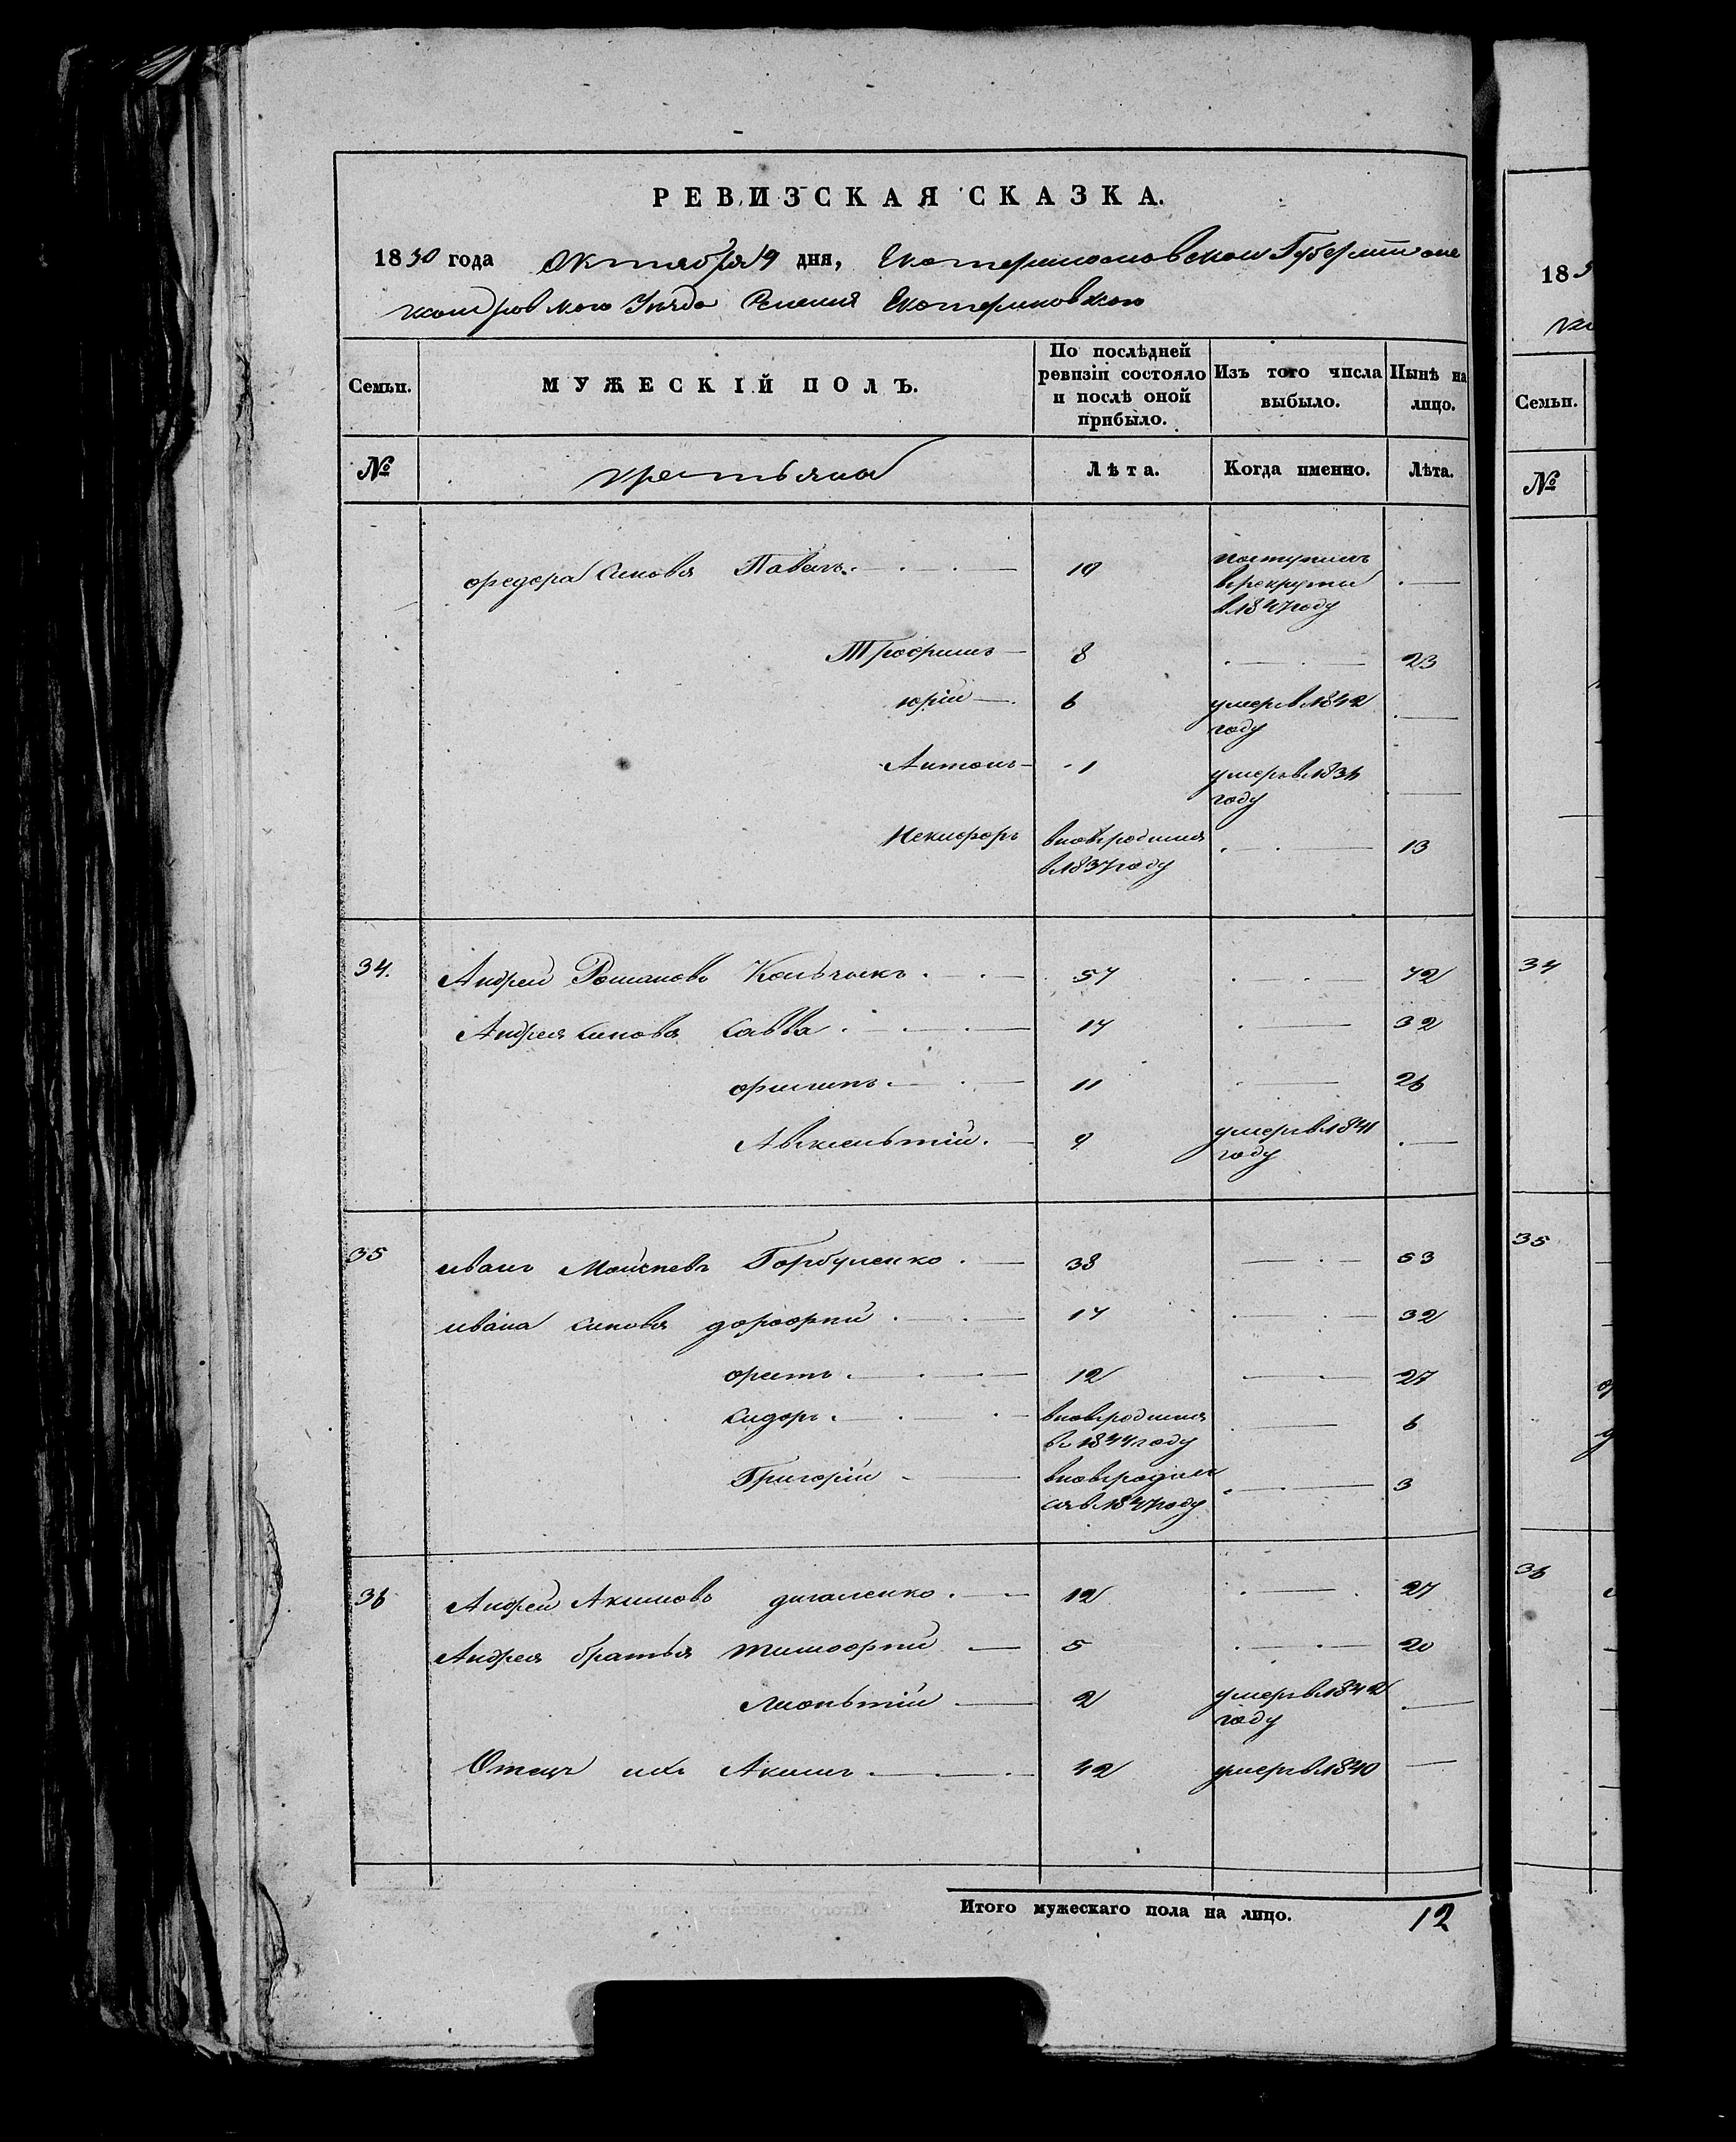 РЕВИЗСКАЯ СКАЗКА.
1850 года Октября 19 дня, Екатеринославской Губернии Але
ксандровского Уезда Селения Екатериновкаго
Семьи.
МУЖЕСКІЙ ПОЛЪ.
По послѣдней ревизіи состояло и послѣ оной прибыло.
Изъ того числа выбыло.
Нынѣ на лицо.
№
крестьяне
Лѣта.
Когда именно.
Лѣта.
федора синовя Павелъ 10 поступилъ
в рекруты
в 1847 году
Трофимъ 8 23
юрій 6 умеръ в 1842
году
Антонъ 1 умеръ в 1834
году
Некифоръ вновьродился 13
в 1837 году
34. Андрей Романовъ 57 72
Андрея синовя Савва 17 32
филипъ 11 26
Авксентій 9 умеръ в 1841
году
35 иванъ Моисѣевъ Горбуленко 38 53
ивана синовя дорофѣй 17 32
12 27
сидоръ вновьродился 6
въ 1844 году
Григорій вновьродил 3
ся в 1847 году
36 Андрей Акимовъ 12 27
Андрея братья тимофѣй 5 20
леонътій 2 умеръ в 1842
году
Отецъ ихъ Акимъ 42 умеръ в 1840
Итого мужескаго пола на лицо. 12
185
Семьи.
№
34
35
36